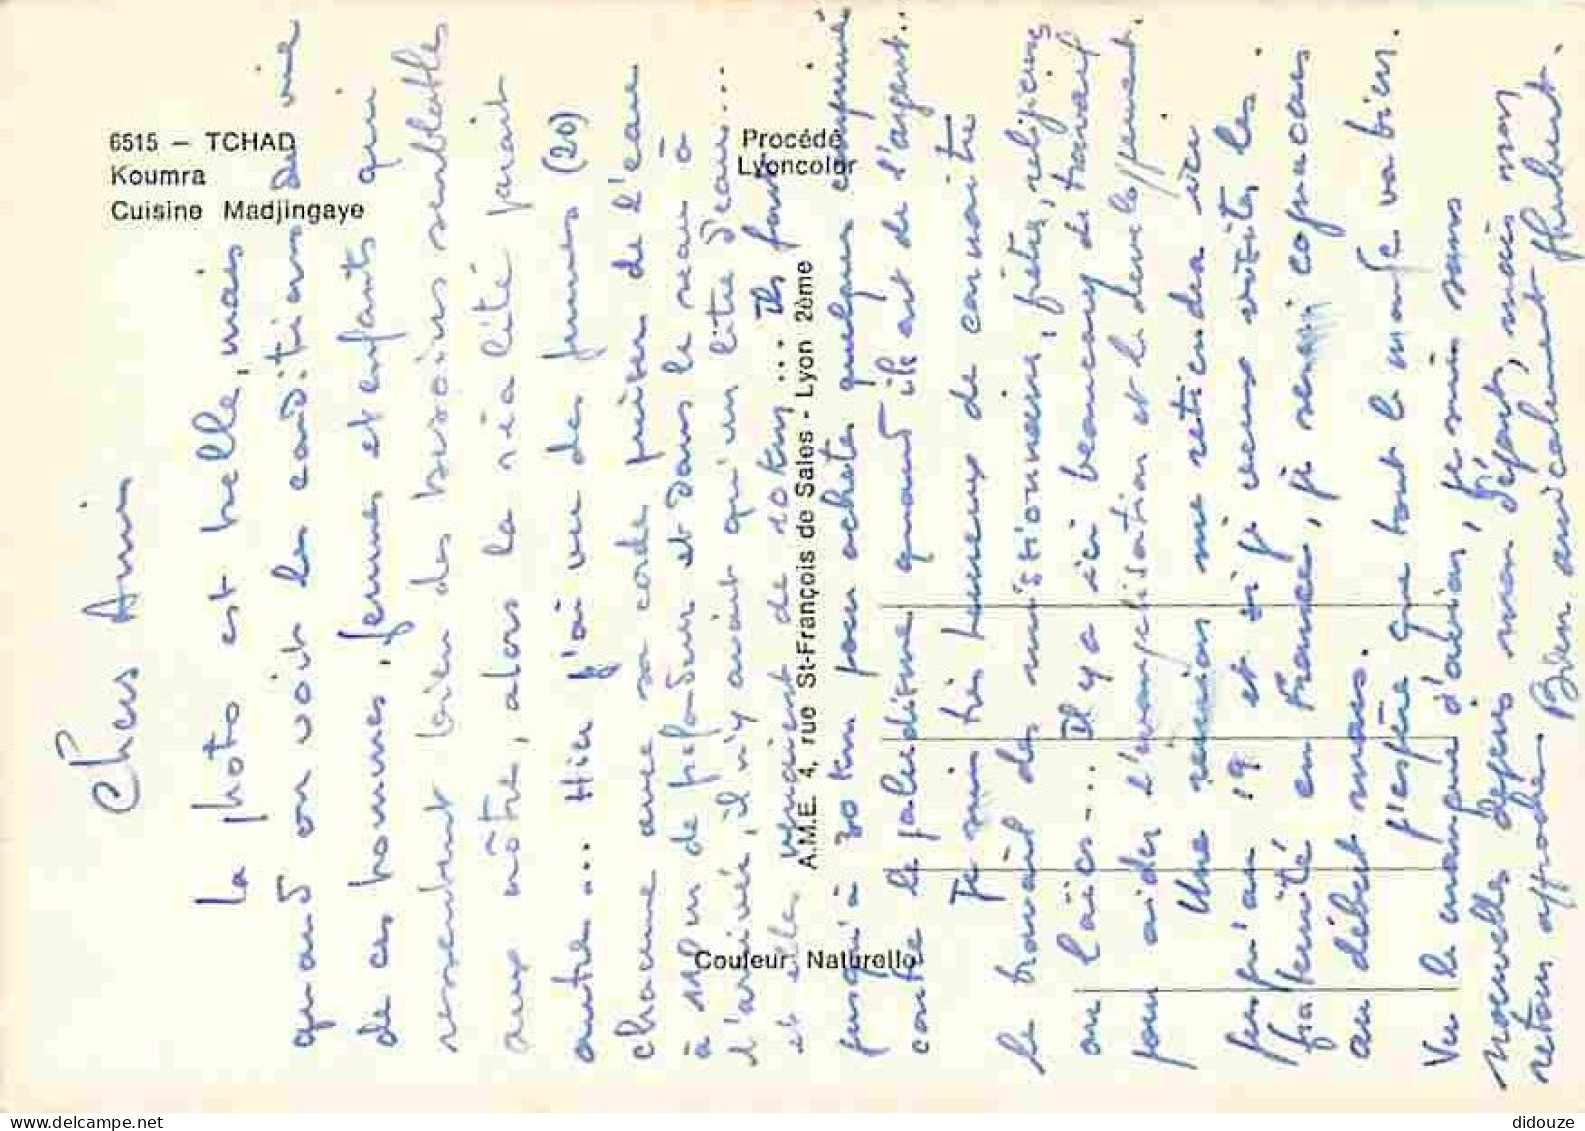 6515 – TCHAD
Koumra
Cuisine Madjingaye
Procédé
Lyoncolor
A.M.E. 4, rue St-François de Sales - Lyon 2ème
Couleur Naturelle
Chers Amis
La photo est belle, mais
quand on voit les conditions de vie
de ces hommes, femmes et enfants qui
ressentent bien des besoins semblables
aux nôtre, alors la réalité parait
autre... Hier j'ai vu des femmes (20)
chacune avec sa corde puiser de l'eau
à 110 m de profondeur et dans le seau à
l'arrivée, il n'y avait qu'un litre d'eau...
et elles venaient de 10 km... Ils font
jusqu'à 30 km pour acheter quelques comprimé
contre le paludisme quand ils ont de l'argent..
Je suis très heureux de connaitre
le travail des missionnaires, pères, religieuses
ou laïcs... Il y a ici beaucoup de travail
pour aider l'évangélisation et le développement.
Une reunion me retiendra ici
jusqu'au 19 et si je veux visiter les
fraternité en France, je serai cognacais
au début mars.
J'espère que tout le monde va bien.
Vu le manque d'avion, je suis sans
nouvelles depuis mon départ, mais mon
retour approche. Bien amicalement Hubert.
didouze
www.delcampe.net